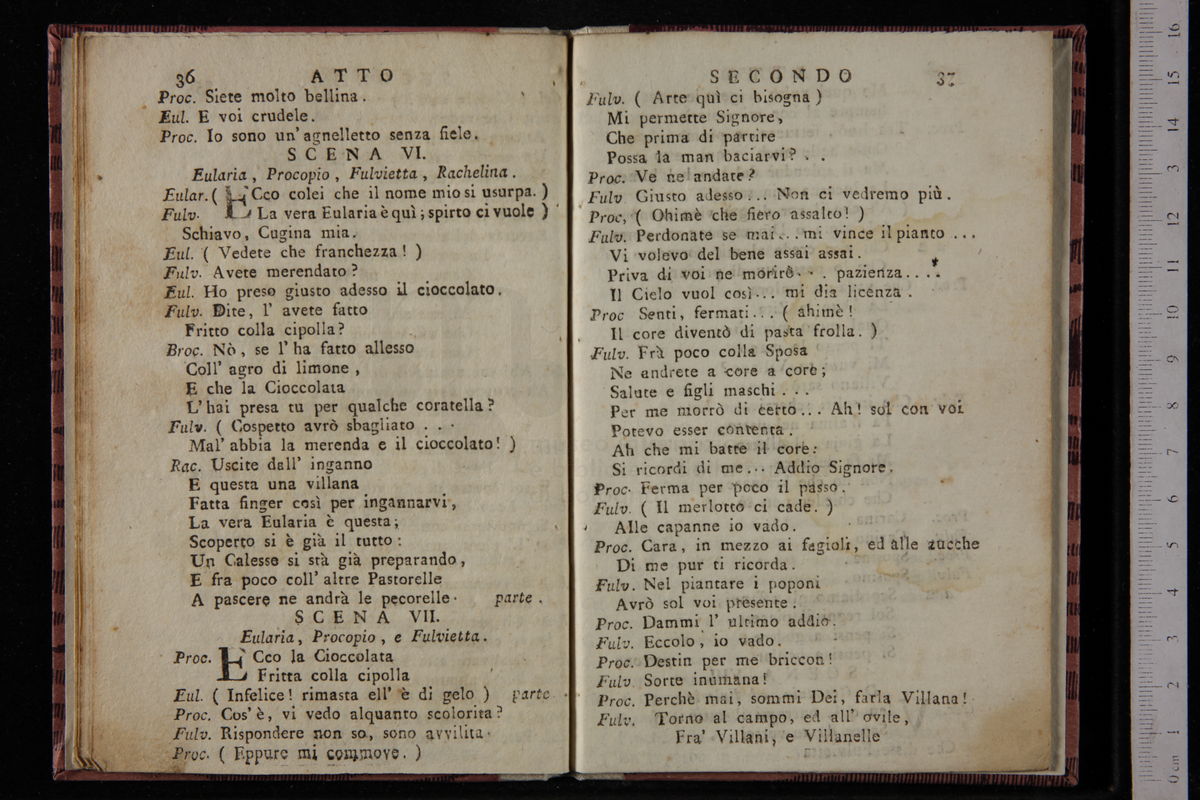 36 ATTO
Proc. Siete molto bellina.
Eul. E voi crudele.
Proc. Io sono un' agnelletto senza fiele.
SCENA VI.
Eularia, Procopio, Fulvietta, Rachelina.
Eular. ( ECco colei che il nome mio si usurpa. )
Fulv. La vera Eularia è quì; spirto ci vuole )
Schiavo, Cugina mia.
Eul. ( Vedete che franchezza! )
Fulv. Avete merendato?
Eul. Ho preso giusto adesso il cioccolato.
Fulv. Dite, l' avete fatto
Fritto colla cipolla?
Broc. Nò, se l' ha fatto allesso
Coll' agro di limone,
E che la Cioccolata
L' hai presa tu per qualche coratella?
Fulv. ( Cospetto avrò sbagliato . . .
Mal' abbia la merenda e il cioccolato! )
Rac. Uscite dall' inganno
E questa una villana
Fatta finger così per ingannarvi,
La vera Eularia è questa;
Scoperto si è già il tutto:
Un Calesse si stà già preparando,
E fra poco coll' altre Pastorelle
A pascere ne andrà le pecorelle. parte.
SCENA VII.
Eularia, Procopio, e Fulvietta.
Proc. ECco la Cioccolata
Fritta colla cipolla
Eul. ( Infelice! rimasta ell' è di gelo ) parte.
Proc. Cos' è, vi vedo alquanto scolorita?
Fulv. Rispondere non so, sono avvilita.
Proc. ( Eppure mi commove. )
SECONDO 37
Fulv. ( Arte quì ci bisogna )
Mi permette Signore,
Che prima di partire
Possa la man baciarvi? . .
Proc. Ve ne andate?
Fulv Giusto adesso... Non ci vedremo più.
Proc, ( Ohimè che fiero assalto! )
Fulv. Perdonate se mai... mi vince il pianto ...
Vi volevo del bene assai assai.
Priva di voi ne morirò . . . pazienza....
Il Cielo vuol così... mi dia licenza.
Proc Senti, fermati... ( ahimè!
Il core diventò di pasta frolla. )
Fulv. Frà poco colla Sposa
Ne andrete a core a core;
Salute e figli maschi . . .
Per me morrò di certo... Ah! sol con voi
Potevo esser contenta.
Ah che mi batte il core:
Si ricordi di me... Addio Signore.
Proc. Ferma per poco il passo.
Fulv. ( Il merlotto ci cade. )
Alle capanne io vado.
Proc. Cara, in mezzo ai fagioli, ed alle zucche
Di me pur ti ricorda.
Fulv. Nel piantare i poponi
Avrò sol voi presente.
Proc. Dammi l' ultimo addio.
Fulv. Eccolo, io vado.
Proc. Destin per me briccon!
Fulv. Sorte inumana!
Proc. Perchè mai, sommi Dei, farla Villana!
Fulv. Torno al campo, ed all' ovile,
Fra' Villani, e Villanelle